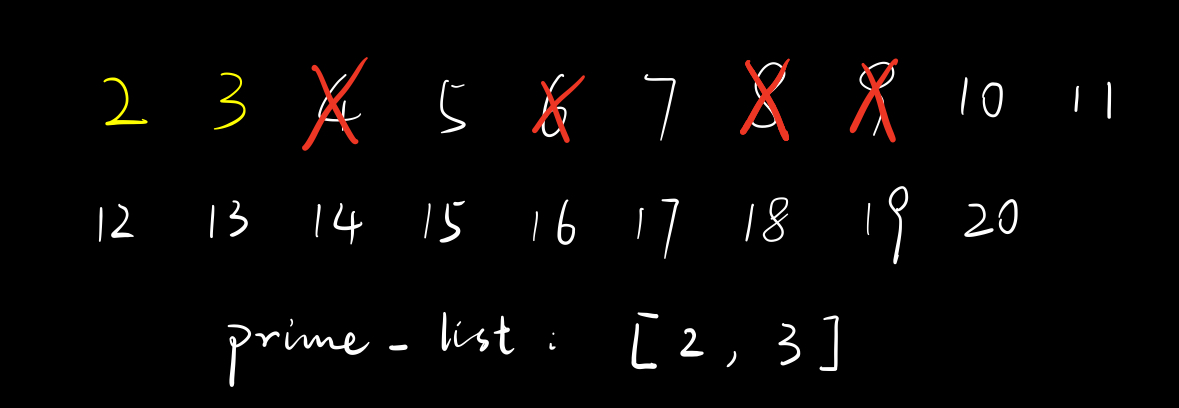 2 3 4 5 6 7 8 9 10 11
12 13 14 15 16 17 18 19 20
prime_list: [2, 3]